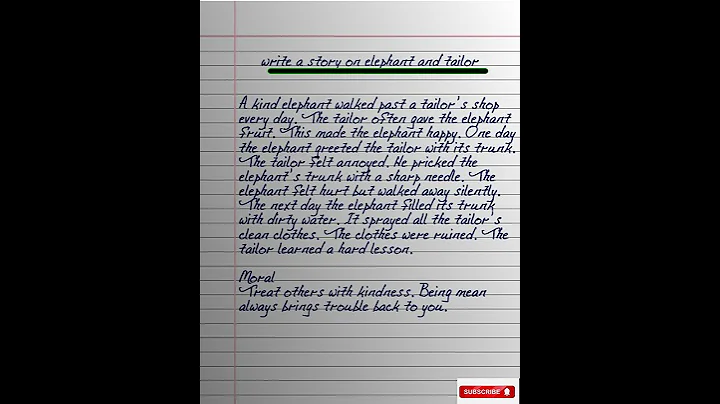 write a story on elephant and tailor
A kind elephant walked past a tailor's shop
every day. The tailor often gave the elephant
fruit. This made the elephant happy. One day
the elephant greeted the tailor with its trunk.
The tailor felt annoyed. He pricked the
elephant's trunk with a sharp needle. The
elephant felt hurt but walked away silently.
The next day the elephant filled its trunk
with dirty water. It sprayed all the tailor's
clean clothes. The clothes were ruined. The
tailor learned a hard lesson.
Moral
Treat others with kindness. Being mean
always brings trouble back to you.
SUBSCRIBE